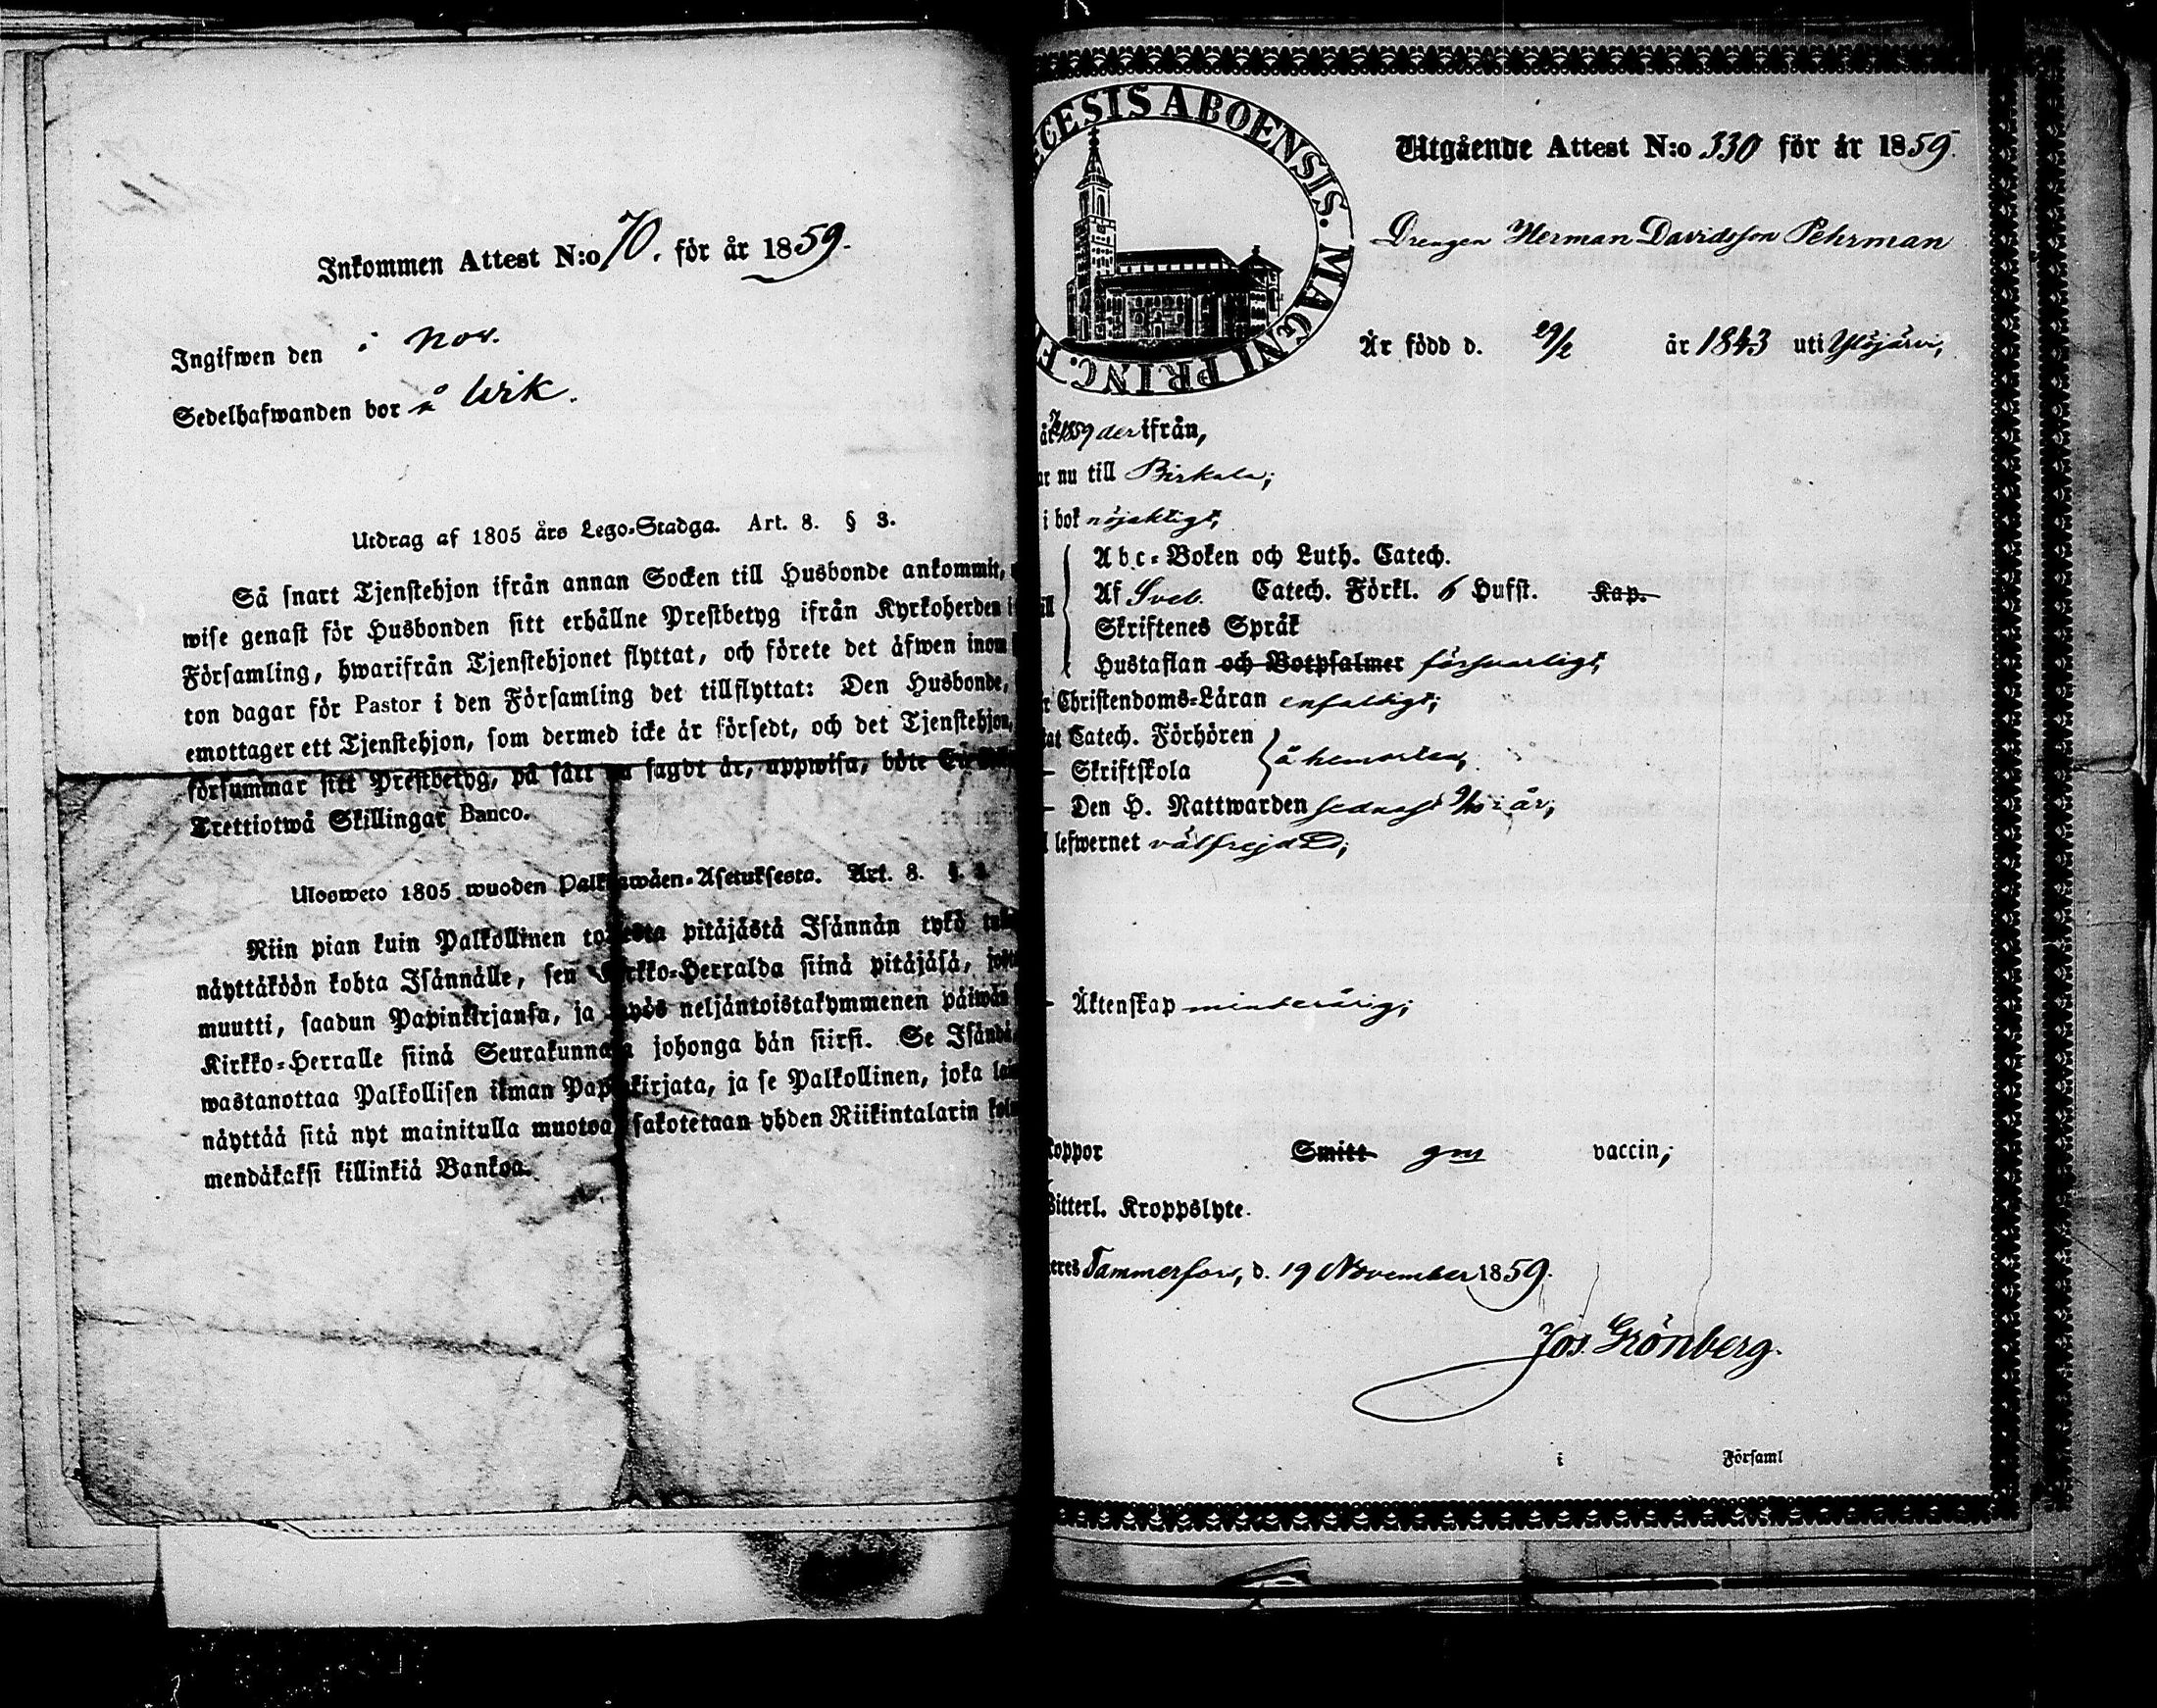 Inkommen Attest N:o 70. för år 1859.
Ingifwen den i Nov.
Sedelhafwanden bor å Wik.
Utdrag af 1805 års Lego-Stadga. Art. 8. § 3.
Så snart Tjenstehjon ifrån annan Socken till Husbonde ankommit,
wise genast för Husbonden sitt erhållne Prestbetyg ifrån Kyrkoherden i
Församling, hwarifrån Tjenstehjonet flyttat, och förete det äfwen inom
ton dagar för Pastor i den Församling det tillflyttat: Den Husbonde,
emottager ett Tjenstehjon, som dermed icke är försedt, och det Tjenstehjon,
försummar sitt Prestbetyg, på sätt nu sagdt är, uppwisa, böte
Trettiotwå Skillingar Banco.
Ulosweto 1805 wuoden Palkkawäen-Asetuksesta. Art. 8. §
Niin pian kuin Palkollinen toisesta pitäjästä Isännän tykö
näyttäköön kohta Isännälle, sen Kirkko-Herralda siinä pitäjäsä,
muutti, saadun Papinkirjansa, ja myös neljäntoistakymmenen päiwän
Kirkko-Herralle siinä Seurakunnasa johonga hän siirsi. Se Isändä,
wastanottaa Palkollisen ilman Papinkirjata, ja se Palkollinen, joka
näyttää sitä nyt mainitulla muotoa, sakotetaan yhden Riikintalarin
mendäkaksi killinkiä Bankoa.
CESIS ABOENSIS. MAGNI PRINC. F
Utgående Attest N:o 330 för år 1859.
Drengen Herman Davidsson Pehrman
Är född d. 29/2 år 1843 uti Ylöjärvi,
1859 der ifrån,
ar nu till Birkala;
i bok nöjaktigt,
Abc-Boken och Luth. Catech.
Af Sveb. Catech. Förkl. 6 Hufst. Kap.
Skriftenes Språk
Hustaflan och Botpsalmer försvarligt,
Christendoms-Läran enfaldigt;
at Catech. Förhören
å hemorten,
Skriftskola
Den H. Nattwarden sednast 9/10 i år;
lefwernet välfrejdad;
Äktenskap minderårig;
koppor Smitt gm vaccin;
Witterl. Kroppslyte.
eres Tammerfors, d. 19 November 1859.
Jos. Grönberg.
i Församl